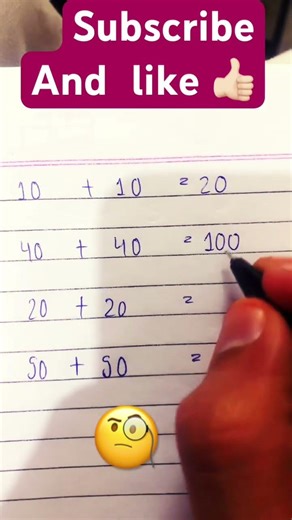 Subscribe
And like 👍🏻
10 + 10 = 20
40 + 40 = 100
20 + 20 =
50 + 50 =